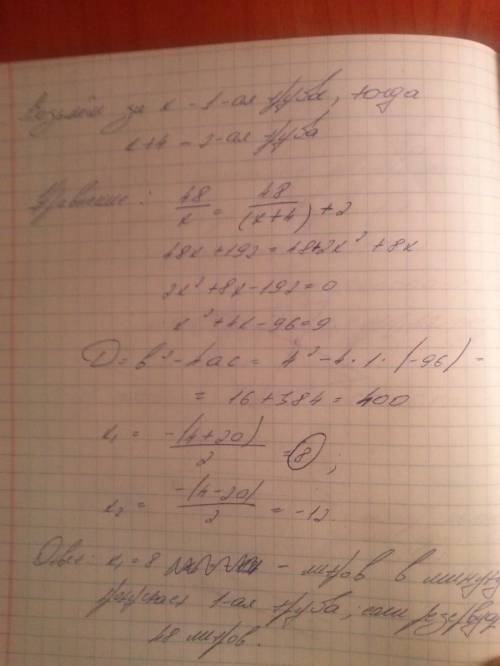 Возьмём за x - 1-ая труба, тогда
x+4 - 2-ая труба
Уравнение: 48/x = 48/(x+4) + 2
48x+192=48+2x² +8x
2x²+8x-192=0
x²+4x-96=9
D=b²-4ac= 4²-4·1·(-96) -
= 16+384= 400
x₁ = -(4+20)/2 =8;
x₂ = -(4-20)/2 = -12
Ответ: x₁=8 - литров в минуту
пропускает 1-ая труба; если резерву
48 литров.